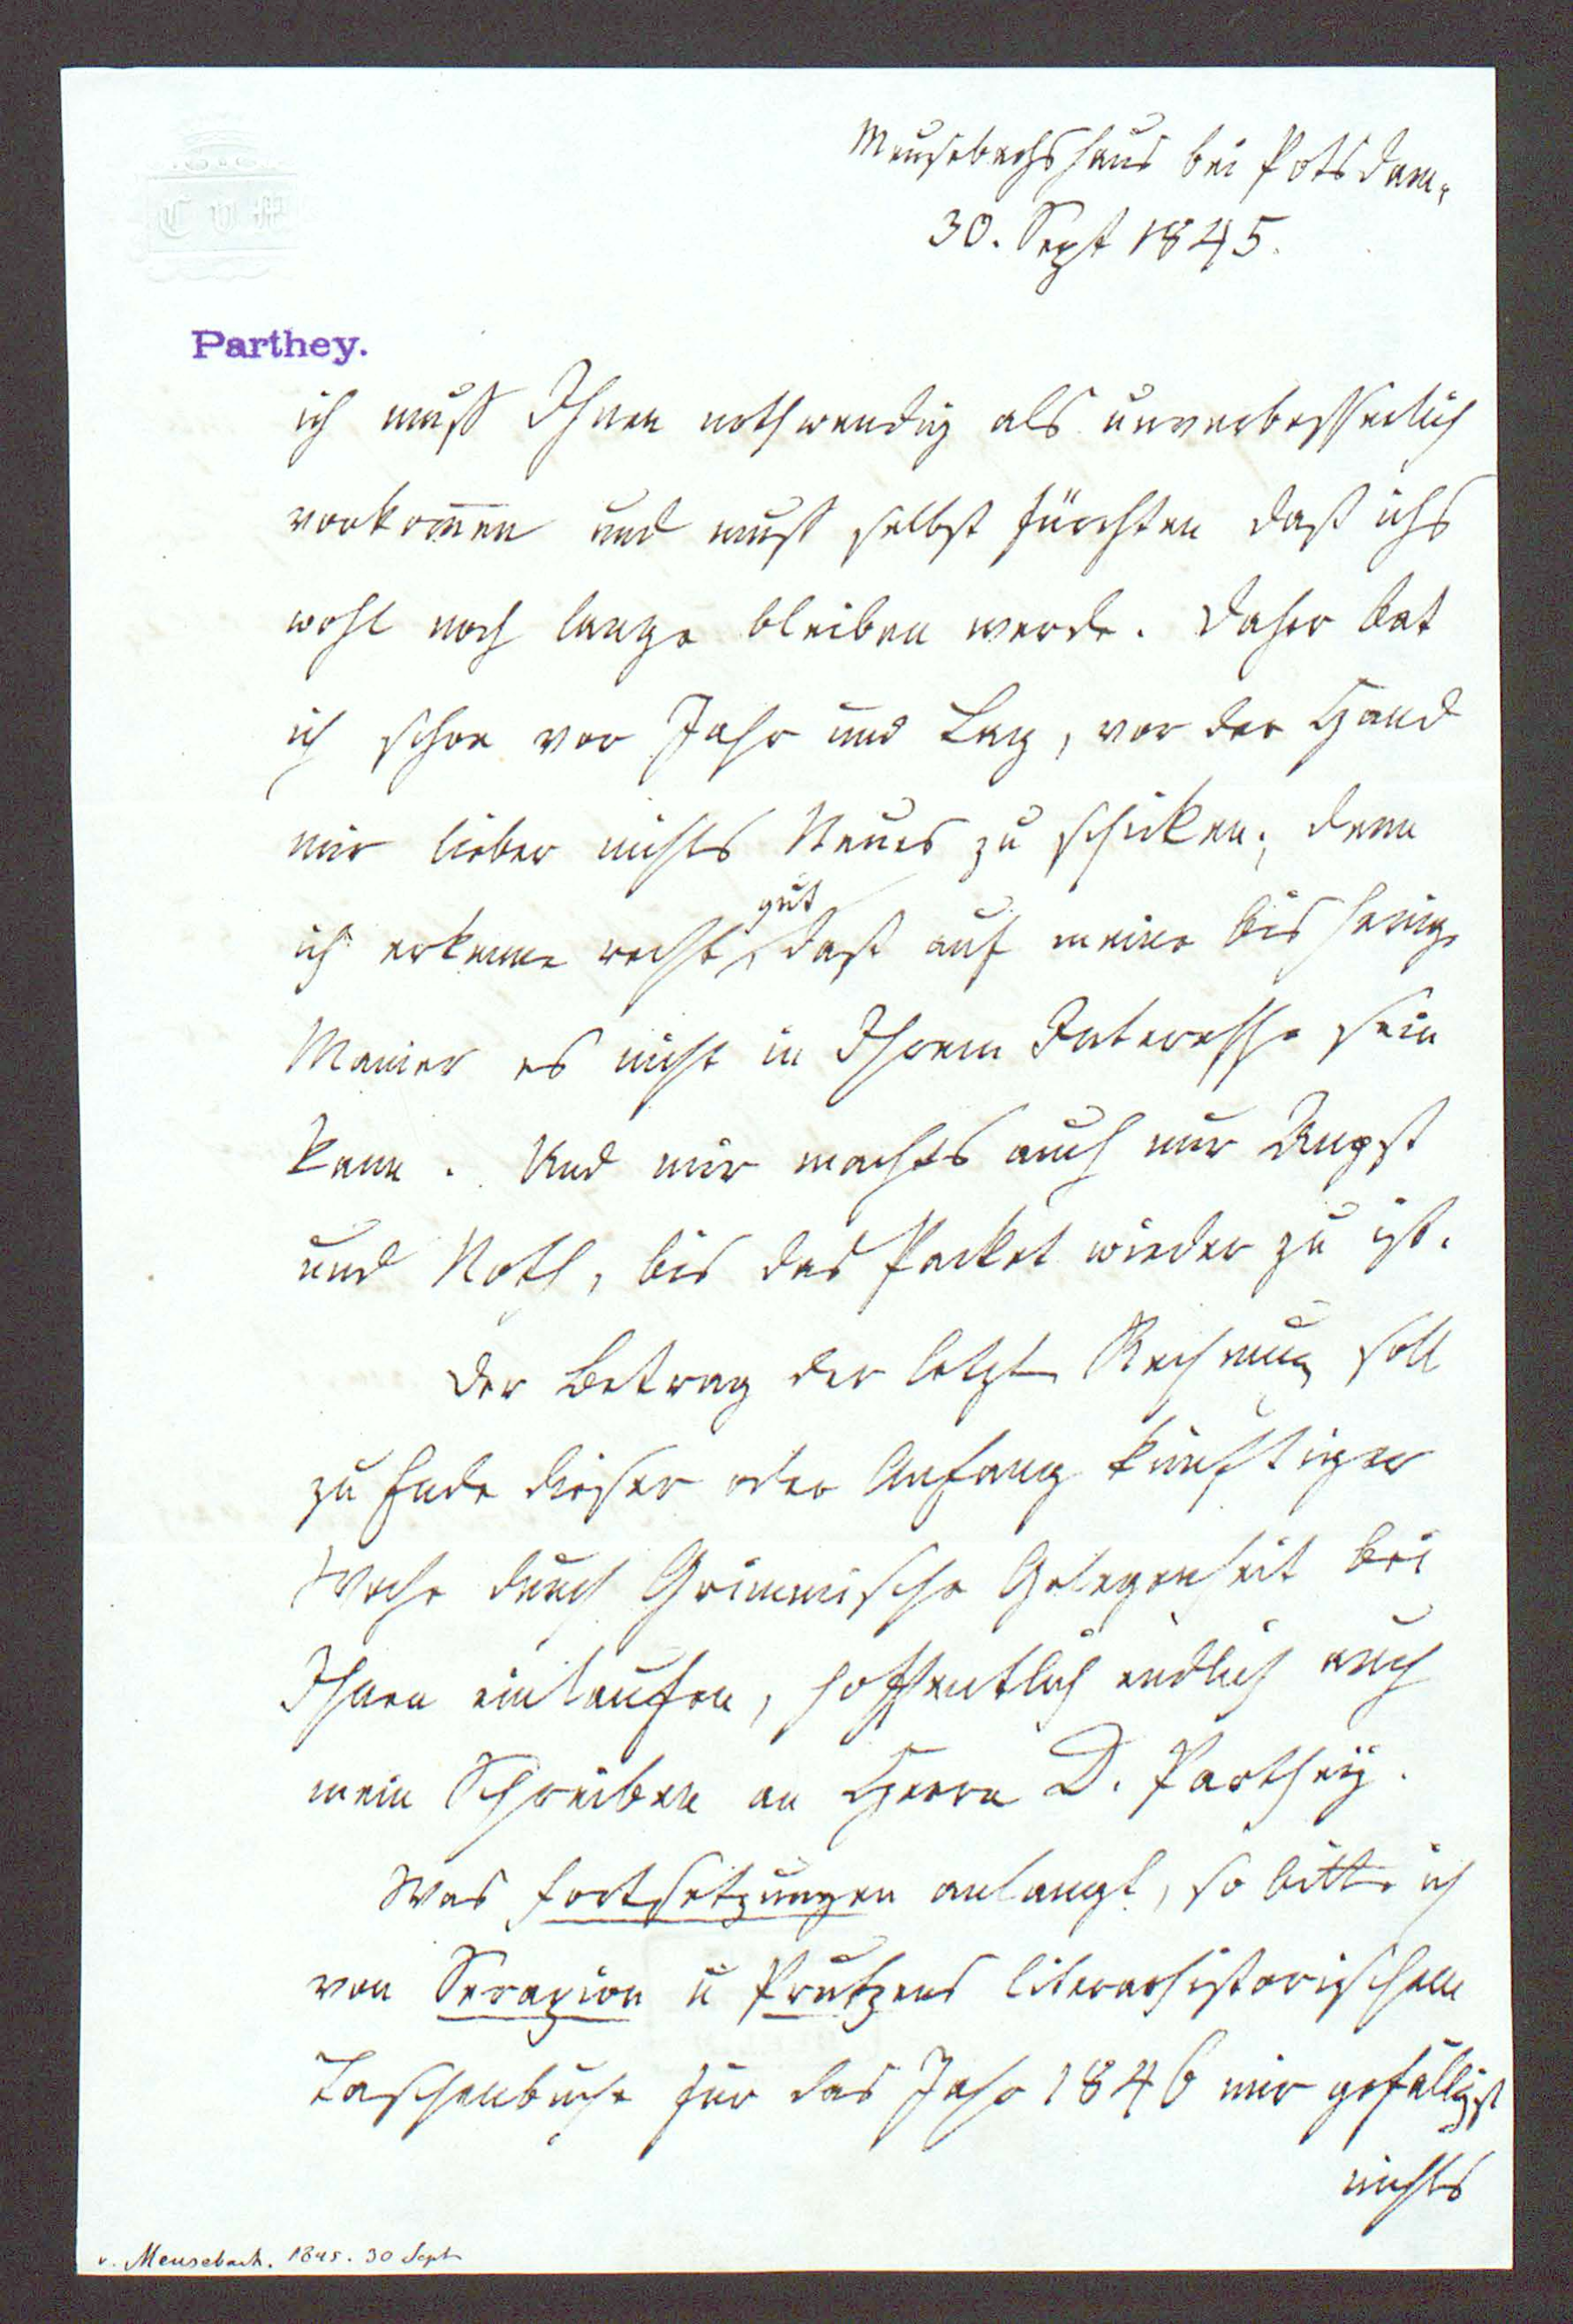 C V M
Meusebachshaus bei Potsdam,
30. Sept 1845.
Parthey.
ich muß Ihnen nothwendig als unverbesserlich
vorkom̅en und muß selbst fürchten daß ichs
wohl noch lange bleiben werde. Daher bat
ich schon vor Jahr und Tag, vor der Hand
mir lieber nichts Neues zu schicken; denn
ich erkenne recht gut, daß auf meine bisherige
Manier es nicht in Ihrem Interesse sein
kann. Und mir machts auch nur Angst
und Noth, bis das Packet wieder zu ist.
Der Betrag der letzten Rechnung soll
zu Ende dieser oder Anfang künftiger
Woche durch Grimmische Gelegenheit bei
Ihnen einlaufen, hoffentlich endlich auch
mein Schreiben an Herrn D. Parthey.
Was Fortsetzungen anlangt, so bitte ich
von Serapion u Prutzens literarhistorischem
Taschenbuche für das Jahr 1846 mir gefälligst
nichts
v. Meusebach. 1845. 30 Sept